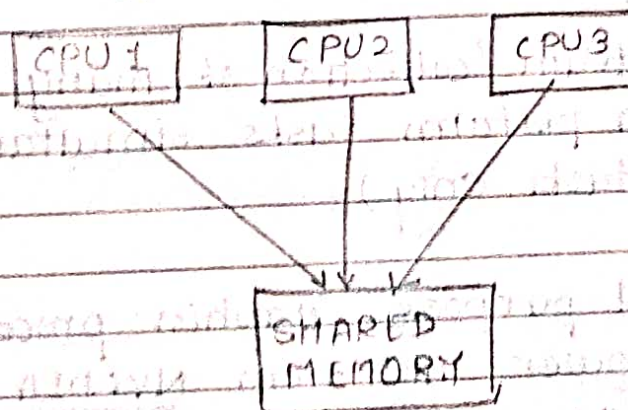 CPU 1 CPU2 CPU 3
SHARED
MEMORY